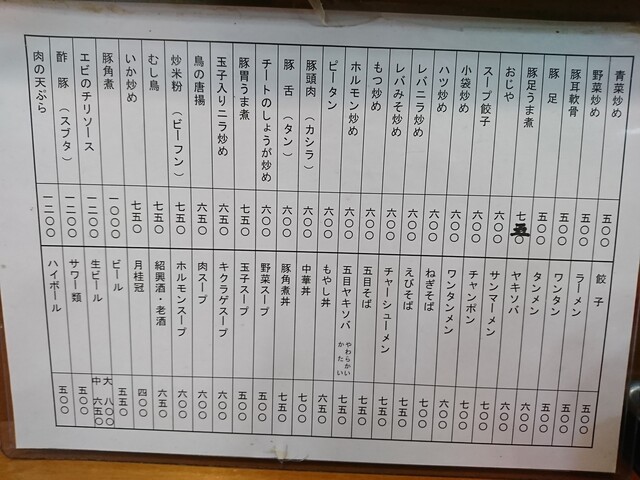 青菜炒め 五〇〇
野菜炒め 五〇〇
豚耳軟骨 五〇〇
豚足 五〇〇
豚足うま煮 七五〇
おじや 六〇〇
スープ餃子 六〇〇
小袋炒め 六〇〇
ハツ炒め 六〇〇
レバニラ炒め 六〇〇
レバみそ炒め 六〇〇
もつ炒め 六〇〇
ホルモン炒め 六〇〇
ピータン 六〇〇
豚頭肉（カシラ） 六〇〇
豚舌（タン） 六〇〇
チートのしょうが炒め 六〇〇
豚胃うま煮 七五〇
玉子入りニラ炒め 六五〇
鳥の唐揚 六五〇
炒米粉（ビーフン） 七五〇
むし鳥 七五〇
いか炒め 七五〇
豚角煮 一〇〇〇
エビのチリソース 一二〇〇
酢豚（スブタ） 一二〇〇
肉の天ぷら 一二〇〇
餃子 五〇〇
ラーメン 五〇〇
ワンタン 五〇〇
タンメン 六〇〇
ヤキソバ 六〇〇
サンマーメン 七〇〇
チャンポン 七〇〇
ワンタンメン 六〇〇
ねぎそば 七〇〇
えびそば 七五〇
チャーシューメン 七五〇
五目そば 七五〇
五目ヤキソバ やわらかい かたい 七五〇
もやし丼 六五〇
中華丼 七〇〇
豚角煮丼 七五〇
野菜スープ 五〇〇
玉子スープ 五〇〇
キクラゲスープ 六〇〇
肉スープ 六〇〇
ホルモンスープ 六〇〇
紹興酒・老酒 六五〇
月桂冠 四〇〇
ビール 五五〇
生ビール 大 八〇〇 中 六五〇
サワー類 五〇〇
ハイボール 五〇〇